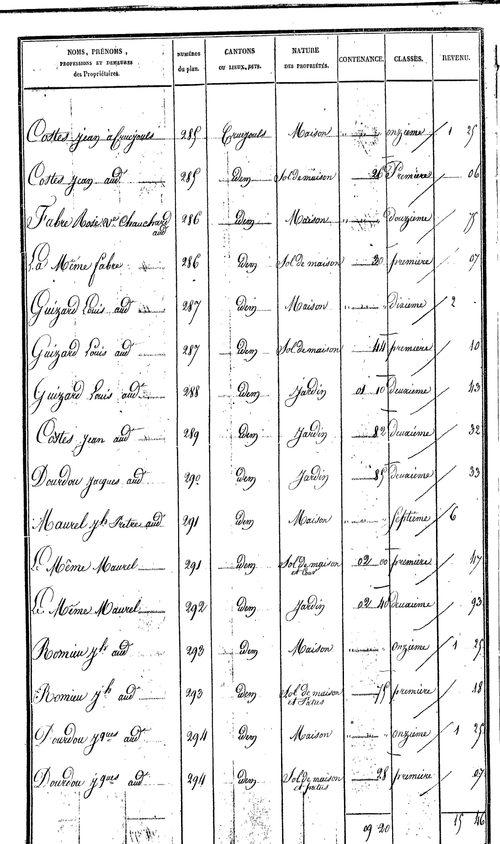 NOMS, PRÉNOMS, PROFESSIONS ET DEMEURES des Propriétaires. NUMÉROS du plan. CANTONS OU LIEUX, DITS. NATURE DES PROPRIÉTÉS. CONTENANCE. CLASSES. REVENU.
Costes Jean à Cruejouls 285 Cruejouls Maison onzieme 1 25
Costes Jean aud 285 idem Sol de maison 26 Premiere 06
Fabre Rose Ve Chauchard aud 286 idem Maison douzieme 75
La Même fabre 286 idem Sol de maison 20 premiere 07
Guizard Louis aud 287 idem Maison dixieme 2
Guizard Louis aud 287 idem Sol de maison 44 premiere 10
Guizard Louis aud 288 idem Jardin 01 10 deuxieme 43
Costes Jean aud 289 idem Jardin 82 deuxieme 32
Dourdou Jacques aud 290 idem Jardin 85 deuxieme 33
Maurel Jh Prêtre aud 291 idem Maison Septieme 6
Le Même Maurel 291 idem Sol de maison et Cour 02 00 premiere 47
Le Même Maurel 292 idem Jardin 02 40 deuxieme 93
Romieu Jh aud 293 idem Maison onzieme 1 25
Romieu Jh aud 293 idem Sol de maison et Patus 75 premiere 18
Dourdou Jques aud 294 idem Maison onzieme 1 25
Dourdou Jques aud 294 idem Sol de maison et patus 28 premiere 07
09 20 15 46